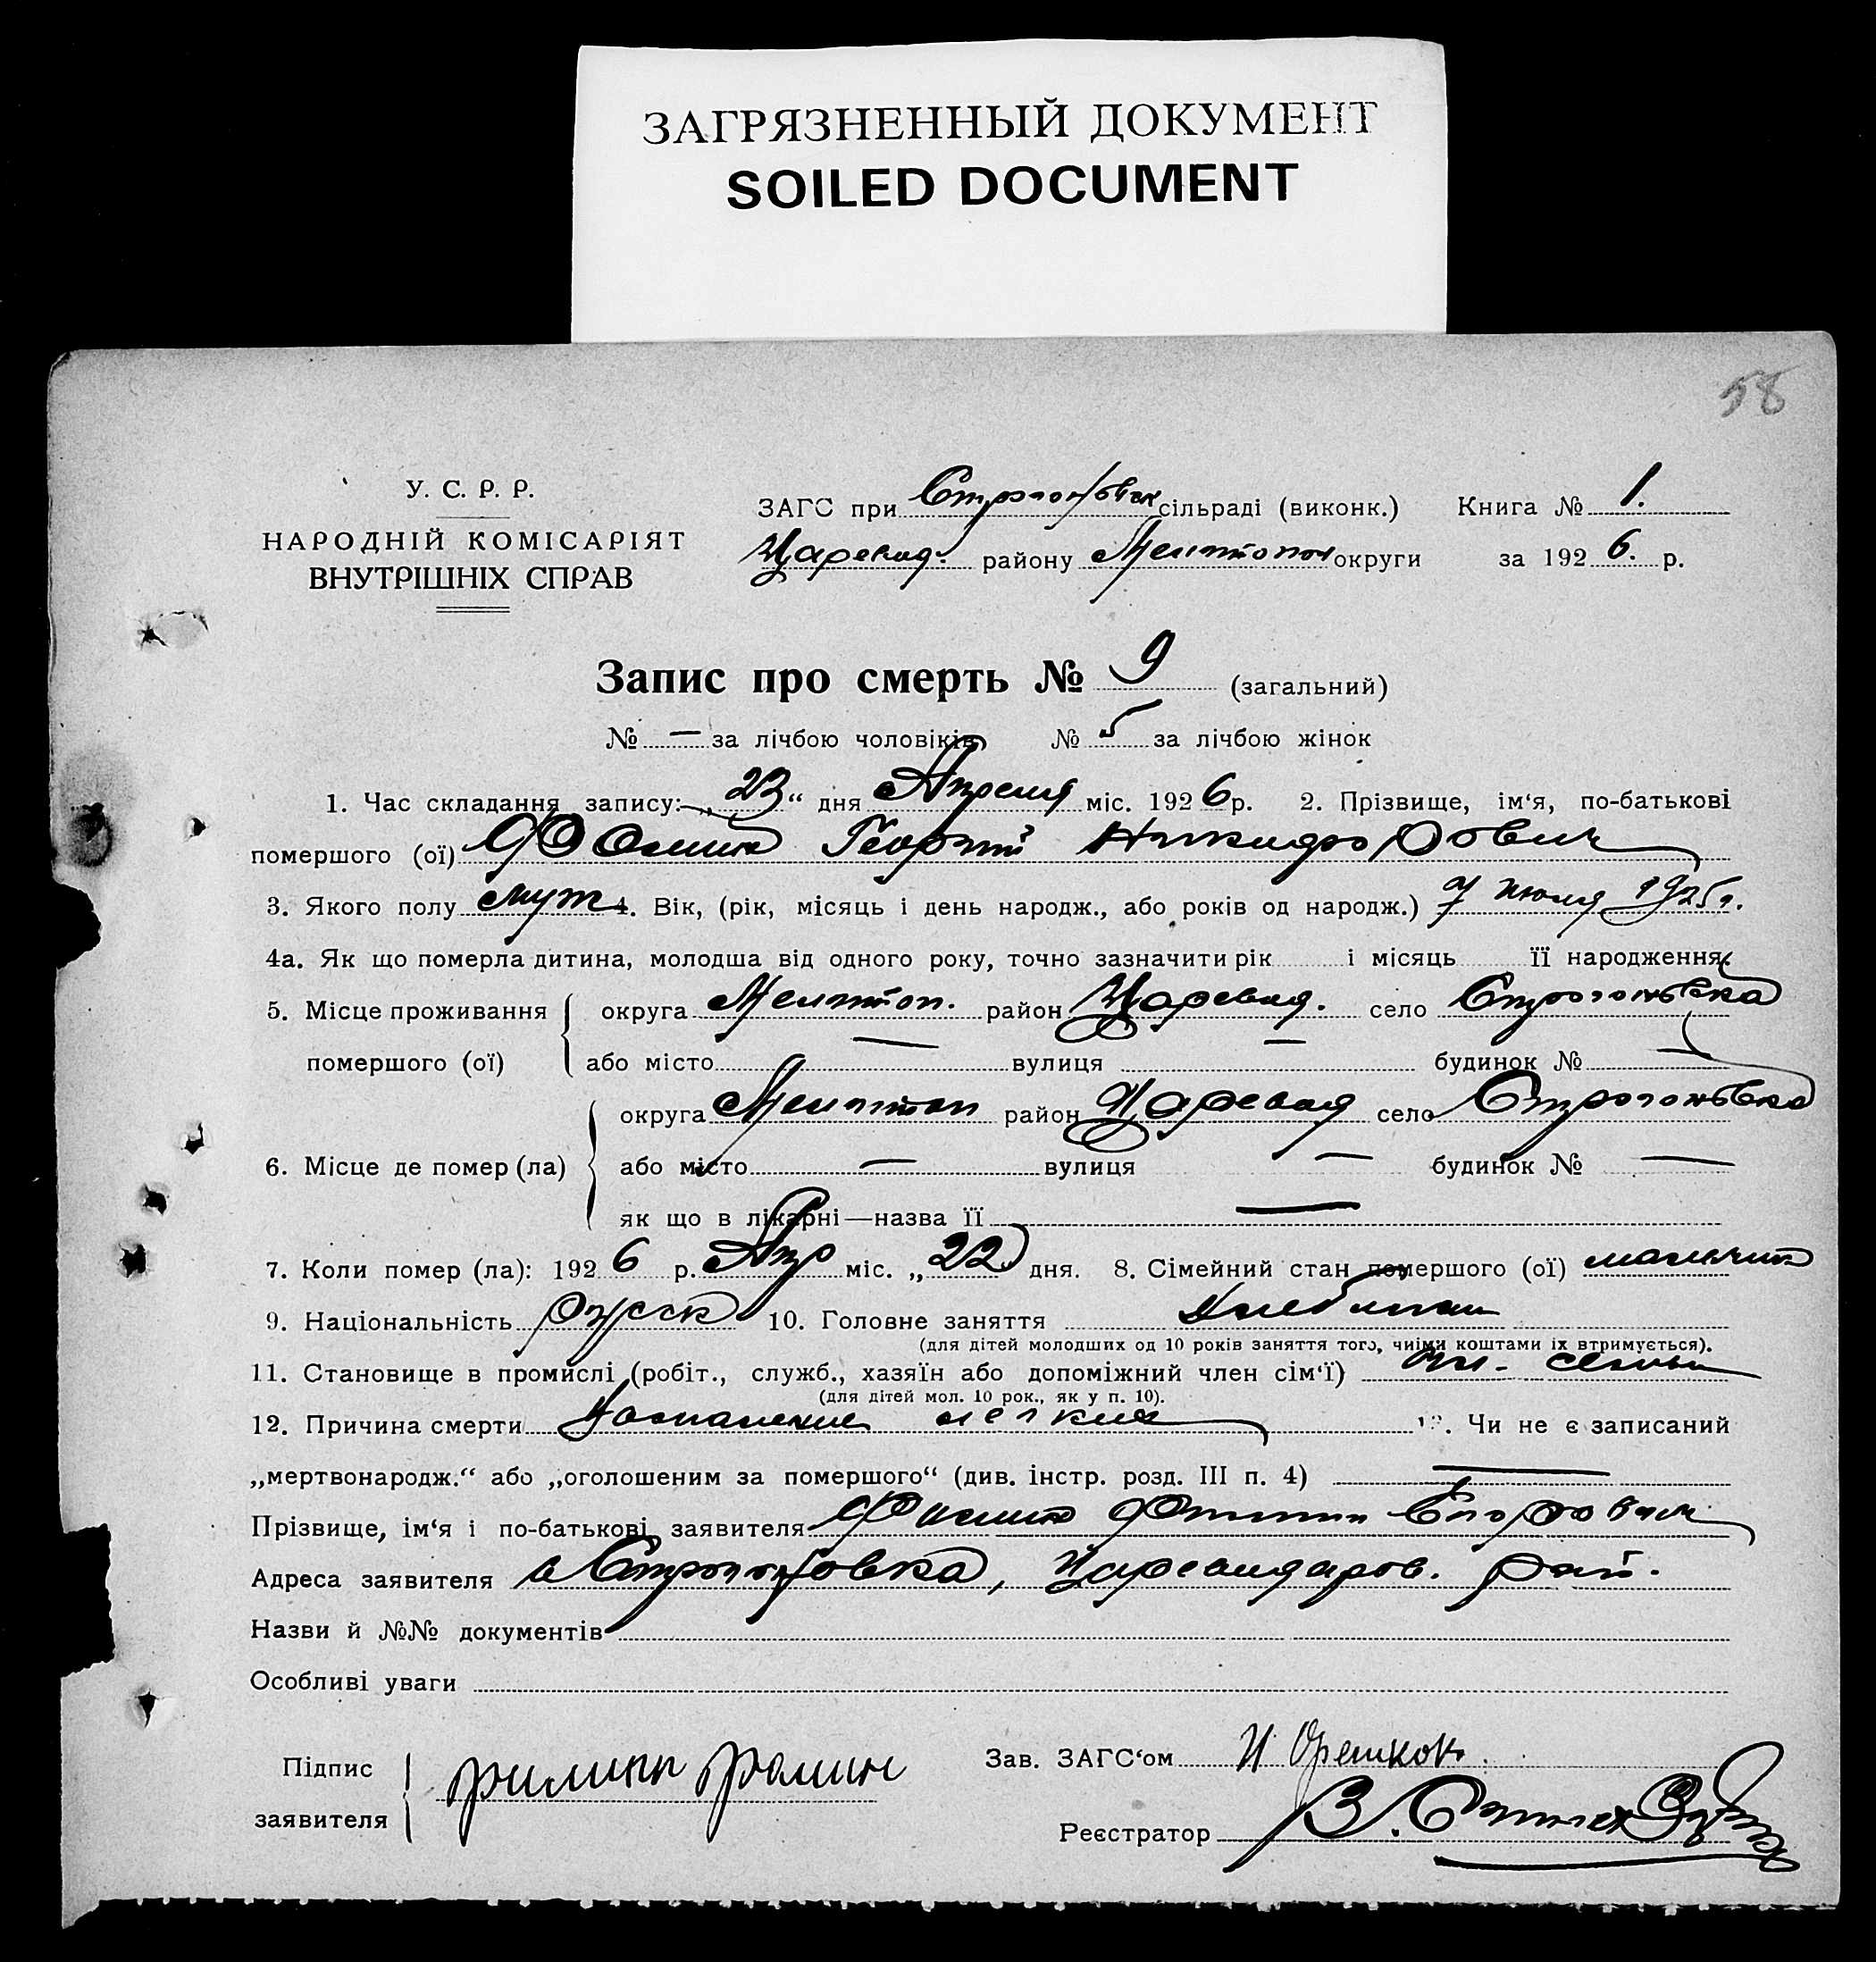 ЗАГРЯЗНЕННЫЙ ДОКУМЕНТ
SOILED DOCUMENT
58
У. С. Р. Р.
НАРОДНІЙ КОМІСАРІЯТ
ВНУТРІШНІХ СПРАВ
ЗАГС при Строгоновск сільраді (виконк.) Книга № 1.
Царевод. району Мелитопол округи за 1926. р.
Запис про смерть № 9 (загальний)
№ — за лічбою чоловіків № 5 за лічбою жінок
1. Час складання запису: „23“ дня Апреля міс. 1926 р. 2. Прізвище, ім‘я, по-батькові
помершого (ої) Фомин Георгий Никифорович
3. Якого полу муж 4. Вік, (рік, місяць і день народж., або років од народж.) 7 июля 1925 г.
4а. Як що померла дитина, молодша від одного року, точно зазначити рік і місяць її народження.
5. Місце проживання округа Мелитоп. район Царевод. село Строгоновка
помершого (ої) або місто — вулиця — будинок № —
округа Мелитоп район Царевод село Строгоновка
6. Місце де помер (ла) або місто — вулиця — будинок № —
як що в лікарні—назва її —
7. Коли помер (ла): 1926 р. Апр міс. „22“ дня. 8. Сімейний стан помершого (ої) мальчик
9. Національність русск 10. Головне заняття хлебопаш
(для дітей молодших од 10 років заняття того, чиїми коштами їх втримується).
11. Становище в промислі (робіт., служб., хазяїн або допоміжний член сім‘ї) чл. семьи
(для дітей мол. 10 рок., як у п. 10).
12. Причина смерти Воспаление легких 13. Чи не є записаний
„мертвонародж.“ або „оголошеним за помершого“ (див. інстр. розд. III п. 4) —
Прізвище, ім‘я і по-батькові заявителя Фомин Филипп Егорович
Адреса заявителя с Строгоновка, Цареводаров. рай.
Назви й №№ документів
Особливі уваги
Підпис заявителя Филипп Фомин
Зав. ЗАГС‘ом И. Орешков
Реєстратор В.